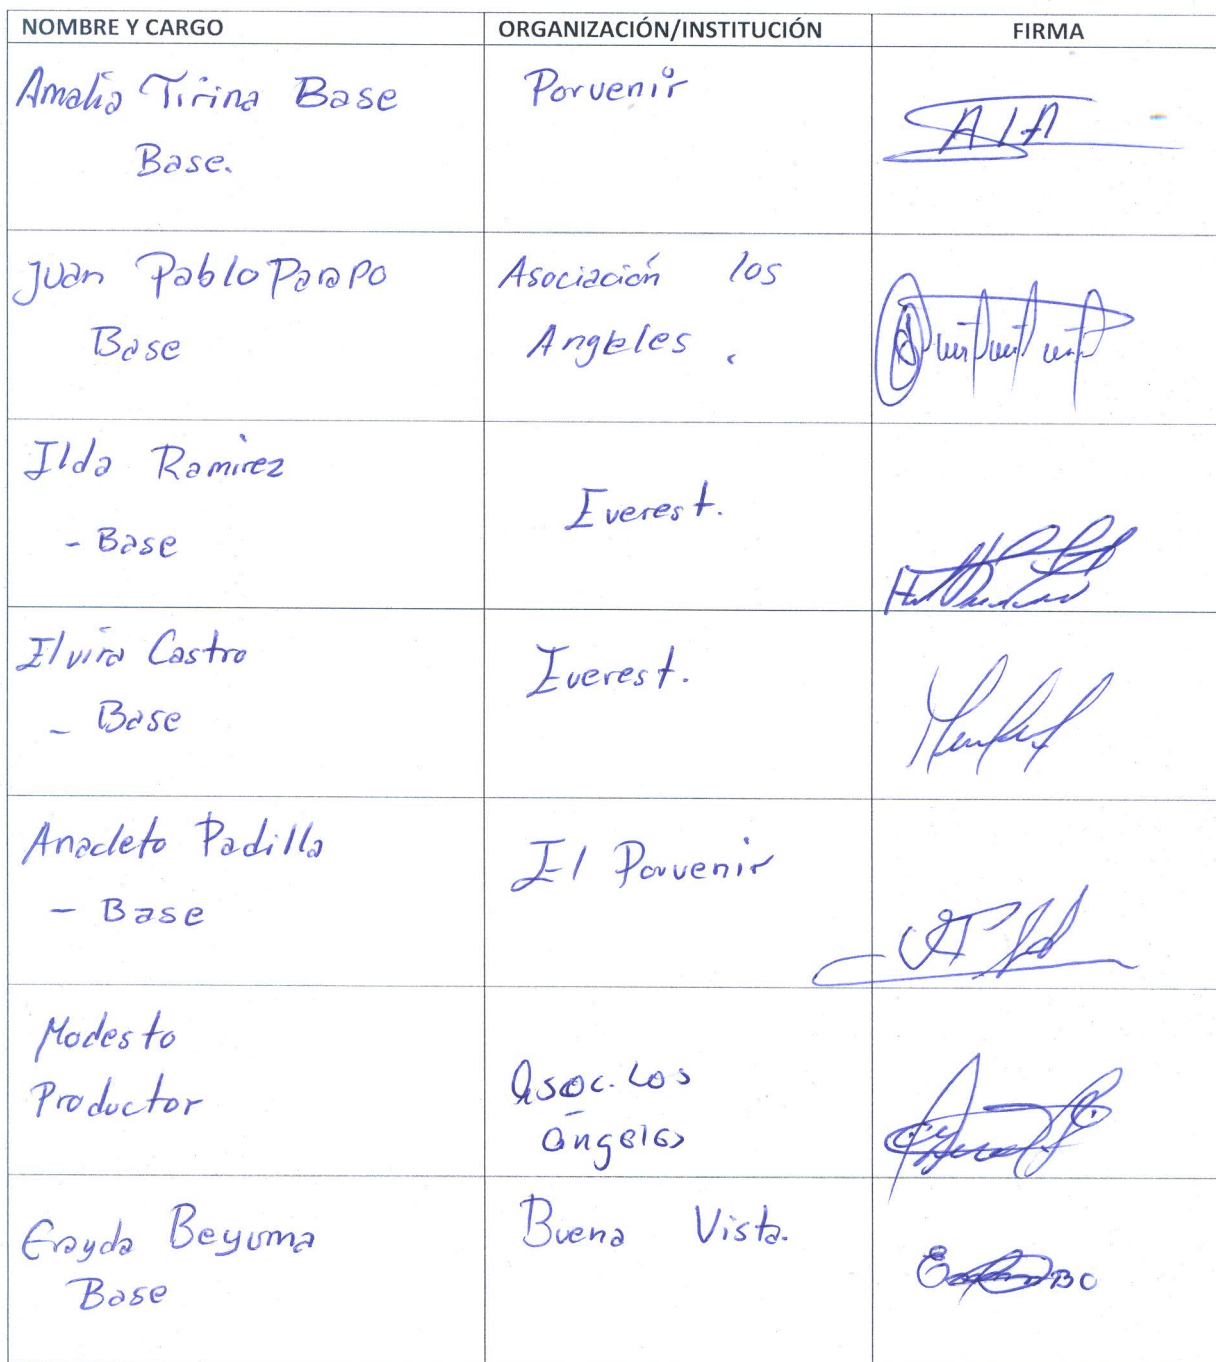 NOMBRE Y CARGO ORGANIZACIÓN/INSTITUCIÓN FIRMA
Amalia Tirina Base Porvenir
Base.
Juan Pablo Parapo Asociación los
Base Angeles.
Ilda Ramirez
- Base Everest.
Elvira Castro Everest.
- Base
Anacleto Padilla El Porvenir
- Base
Modesto
Productor Asoc. Los
angeles
Erayda Beyuma Buena Vista.
Base